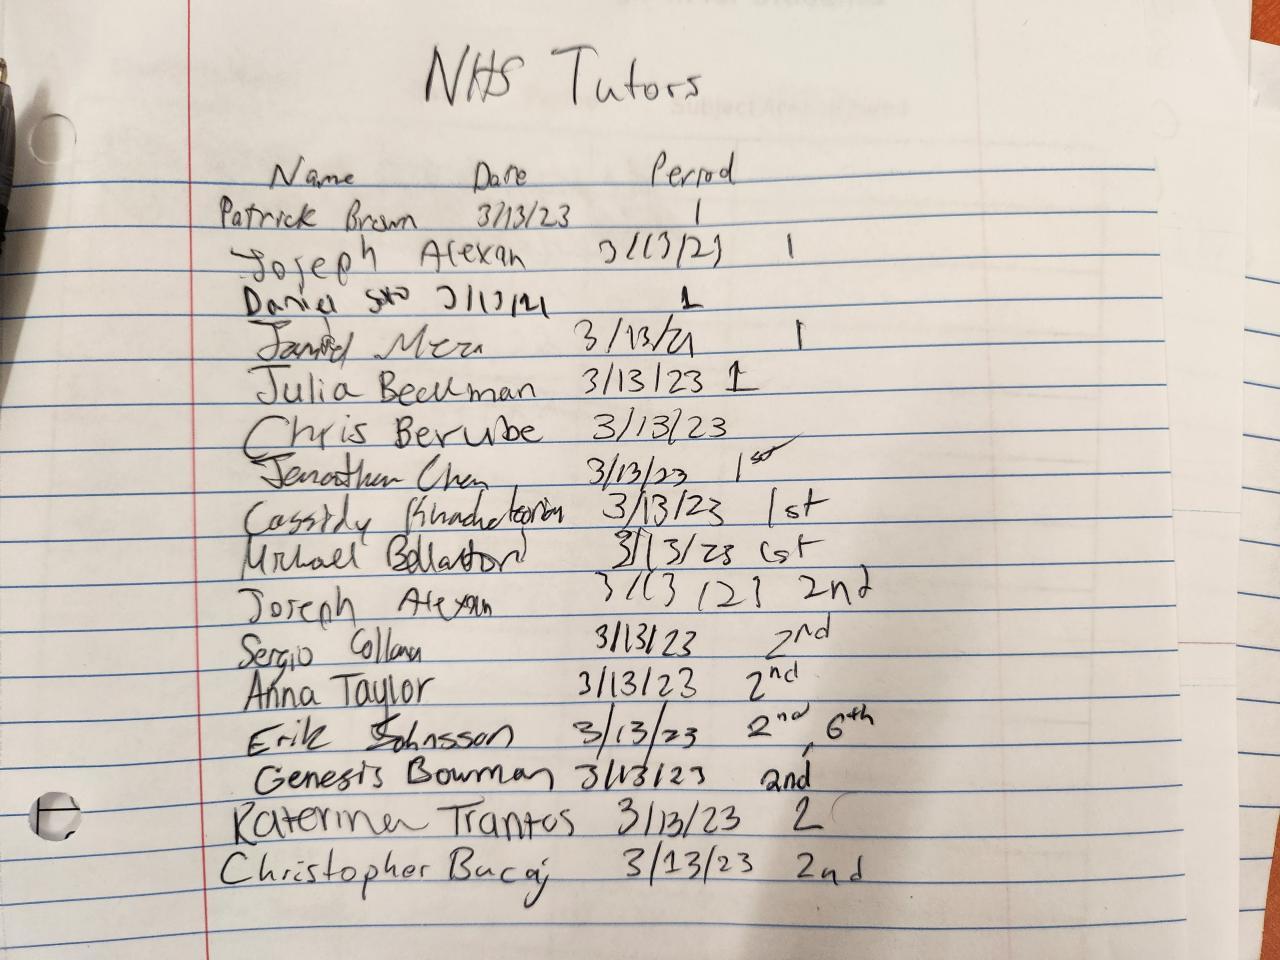 NHS Tutors
Name Date Period
Patrick Brown 3/13/23 1
Joseph Alexan 3/13/23 1
Daniel Soto 3/13/21 1
3/13/21 1
Julia Beckman 3/13/23 1
Chris Berube 3/13/23
Chen 3/13/23 1st
Cassidy 3/13/23 1st
Michael 3/13/23 1st
Joseph Alexan 3/13/23 2nd
Sergio 3/13/23 2nd
Anna Taylor 3/13/23 2nd
Erik Johnsson 3/13/23 2nd, 6th
Genesis Bowman 3/13/23 2nd
Katerina Trantos 3/13/23 2
Christopher Bucaj 3/13/23 2nd